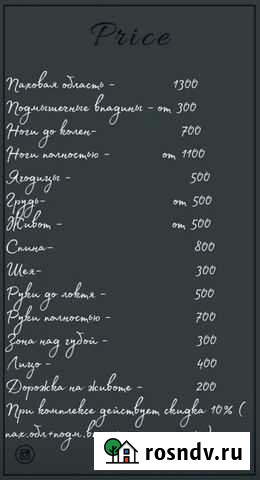 Price
Паховая область - 1300
Подмышечные впадины - от 300
Ноги до колен- 700
Ноги полностью - от 1100
Ягодицы - 500
Грудь- от 500
Живот - от 500
Спина- 800
Шея- 300
Руки до локтя - 500
Руки полностью - 700
Зона над губой - 300
Лицо - 400
Дорожка на животе - 200
При комплексе действует скидка 10% (
пах.обл+подм.
rosndv.ru